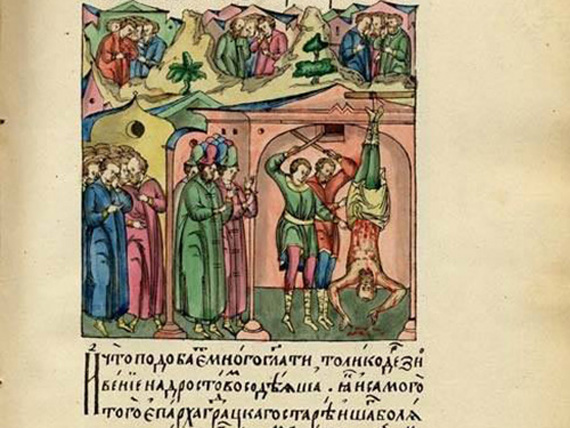 И что подобаетъ много глати, толико дерзн
вение над ростовом содѣяша . ꙗ и самого
того епарха градцкаго старѣиша боля